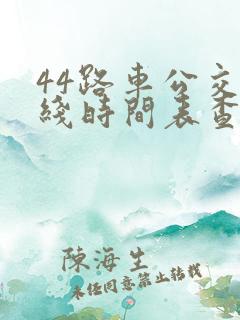 44路車公交
綫時間表查
陳海生
未经同意禁止转载